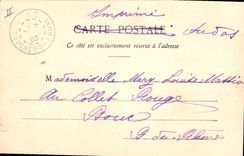 Imprimé
CARTE POSTALE
Ce côté est exclusivement réservé à l'adresse
Mademoiselle Mary Louise Mattio
Au Collet Rouge
Bouc
B. du Rhône